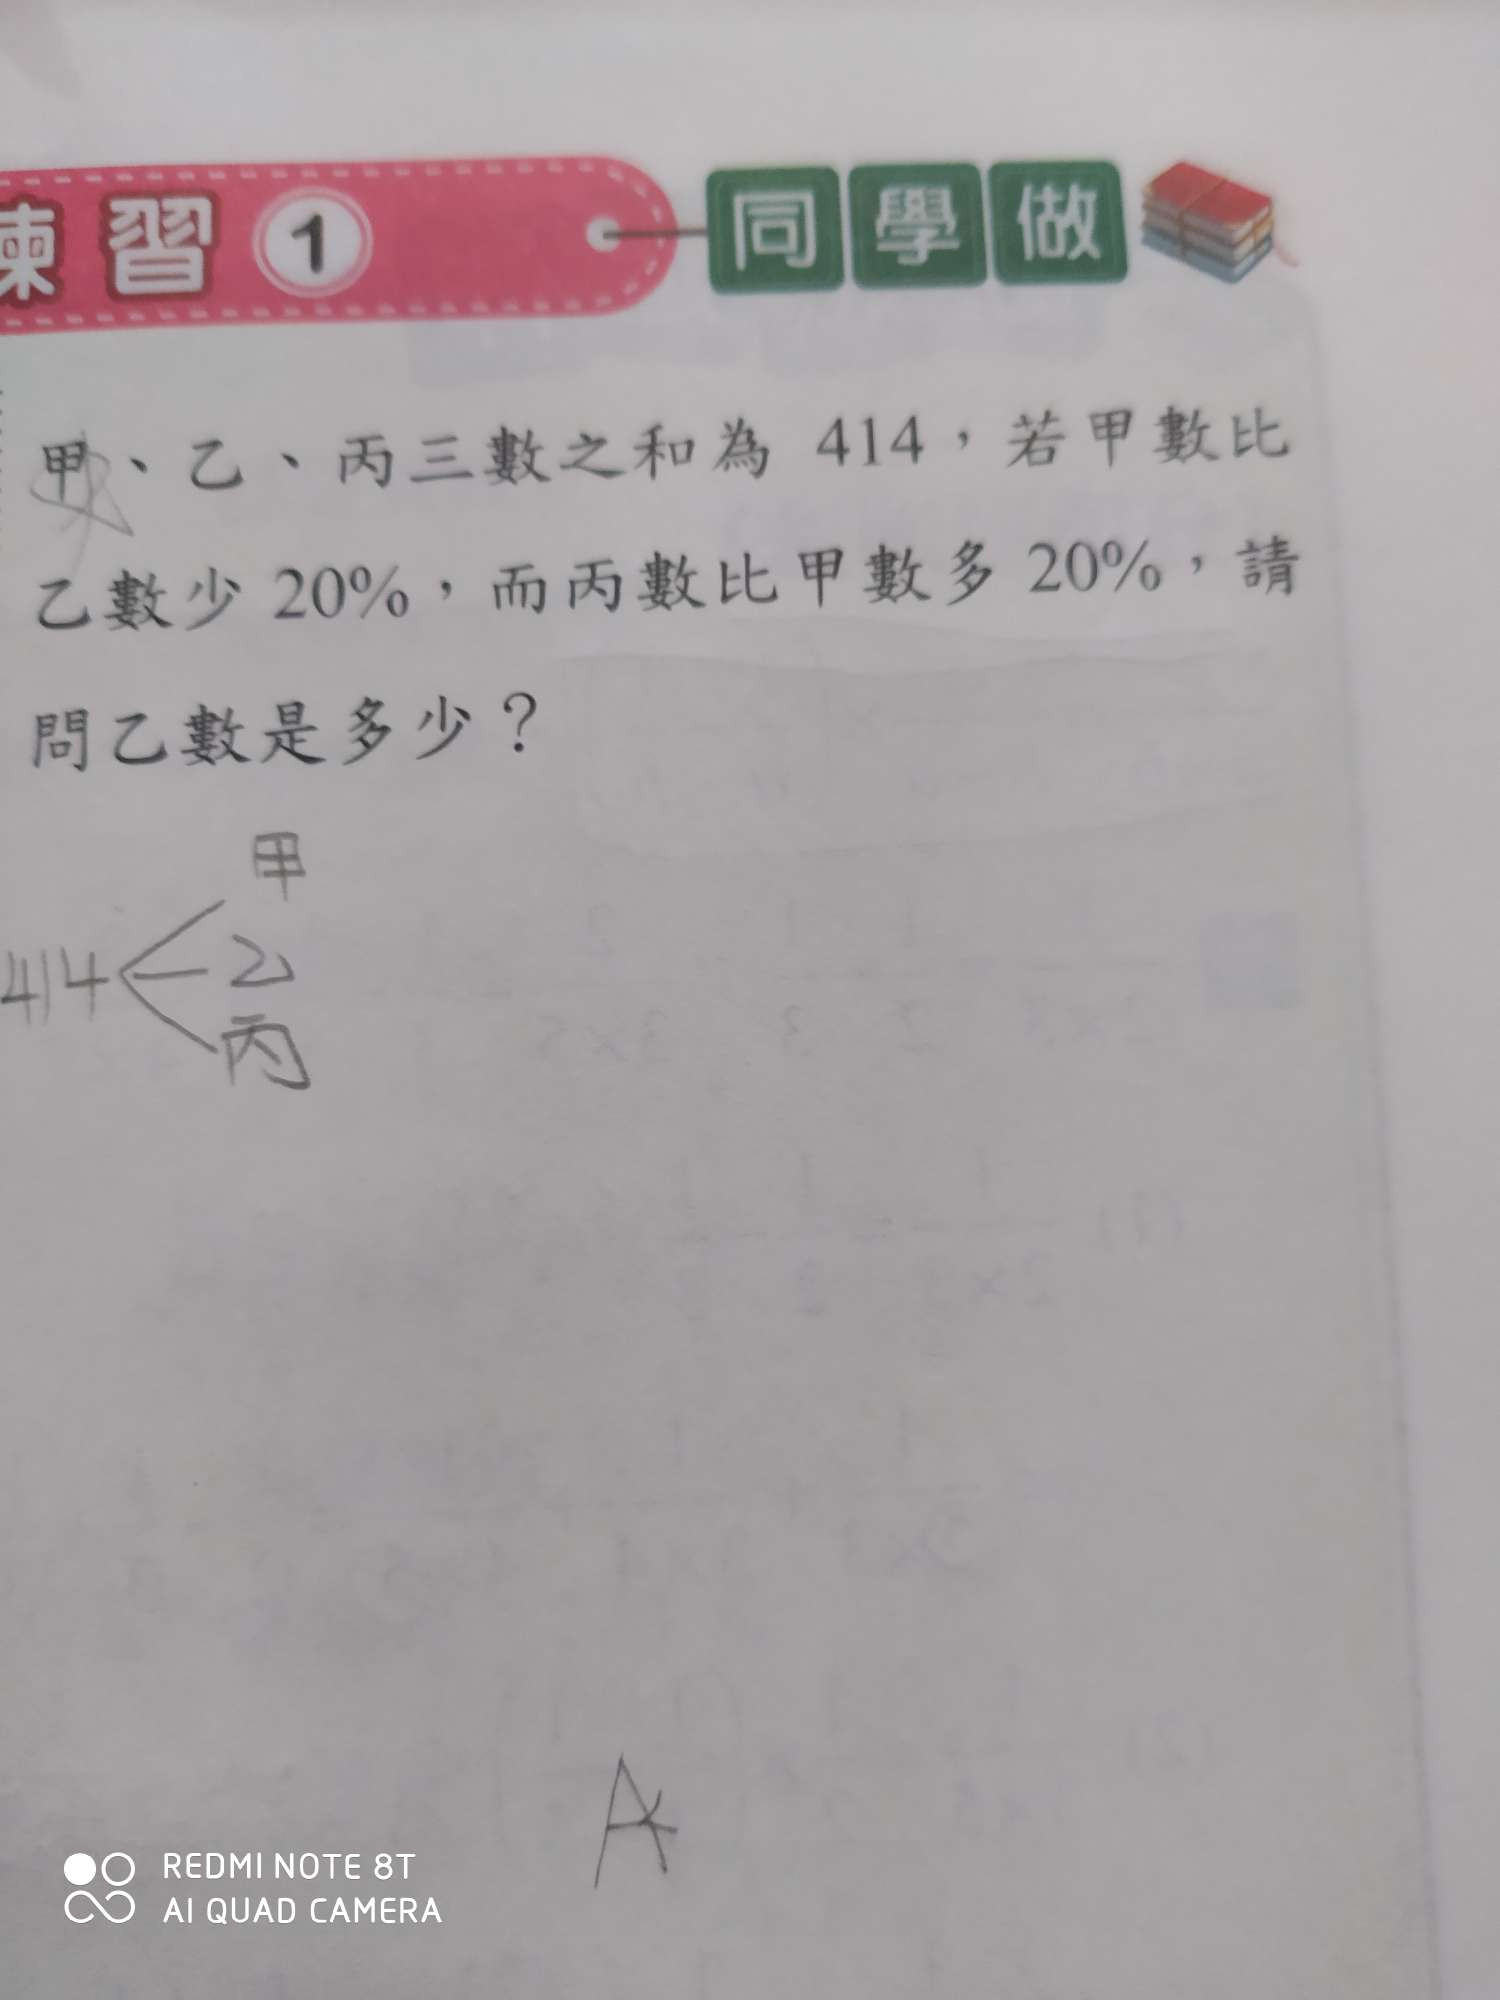 練習 1 同學做
甲、乙、丙三數之和為 414，若甲數比
乙數少 20%，而丙數比甲數多 20%，請
問乙數是多少？
甲
414 乙
丙
A
REDMI NOTE 8T
AI QUAD CAMERA